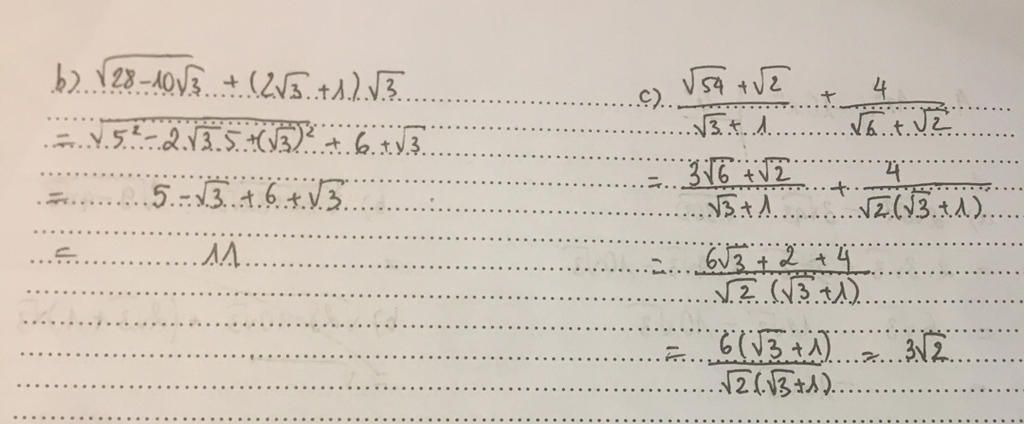 b) √(28-10√3) + (2√3 + 1).√3
= √(5² - 2.√3.5 + (√3)²) + 6 + √3
= 5 - √3 + 6 + √3
= 11
c) (√54 + √2)/(√3 + 1) + 4/(√6 + √2)
= (3√6 + √2)/(√3 + 1) + 4/(√2(√3 + 1))
= (6√3 + 2 + 4)/(√2.(√3 + 1))
= 6(√3 + 1)/(√2(√3 + 1)) = 3√2